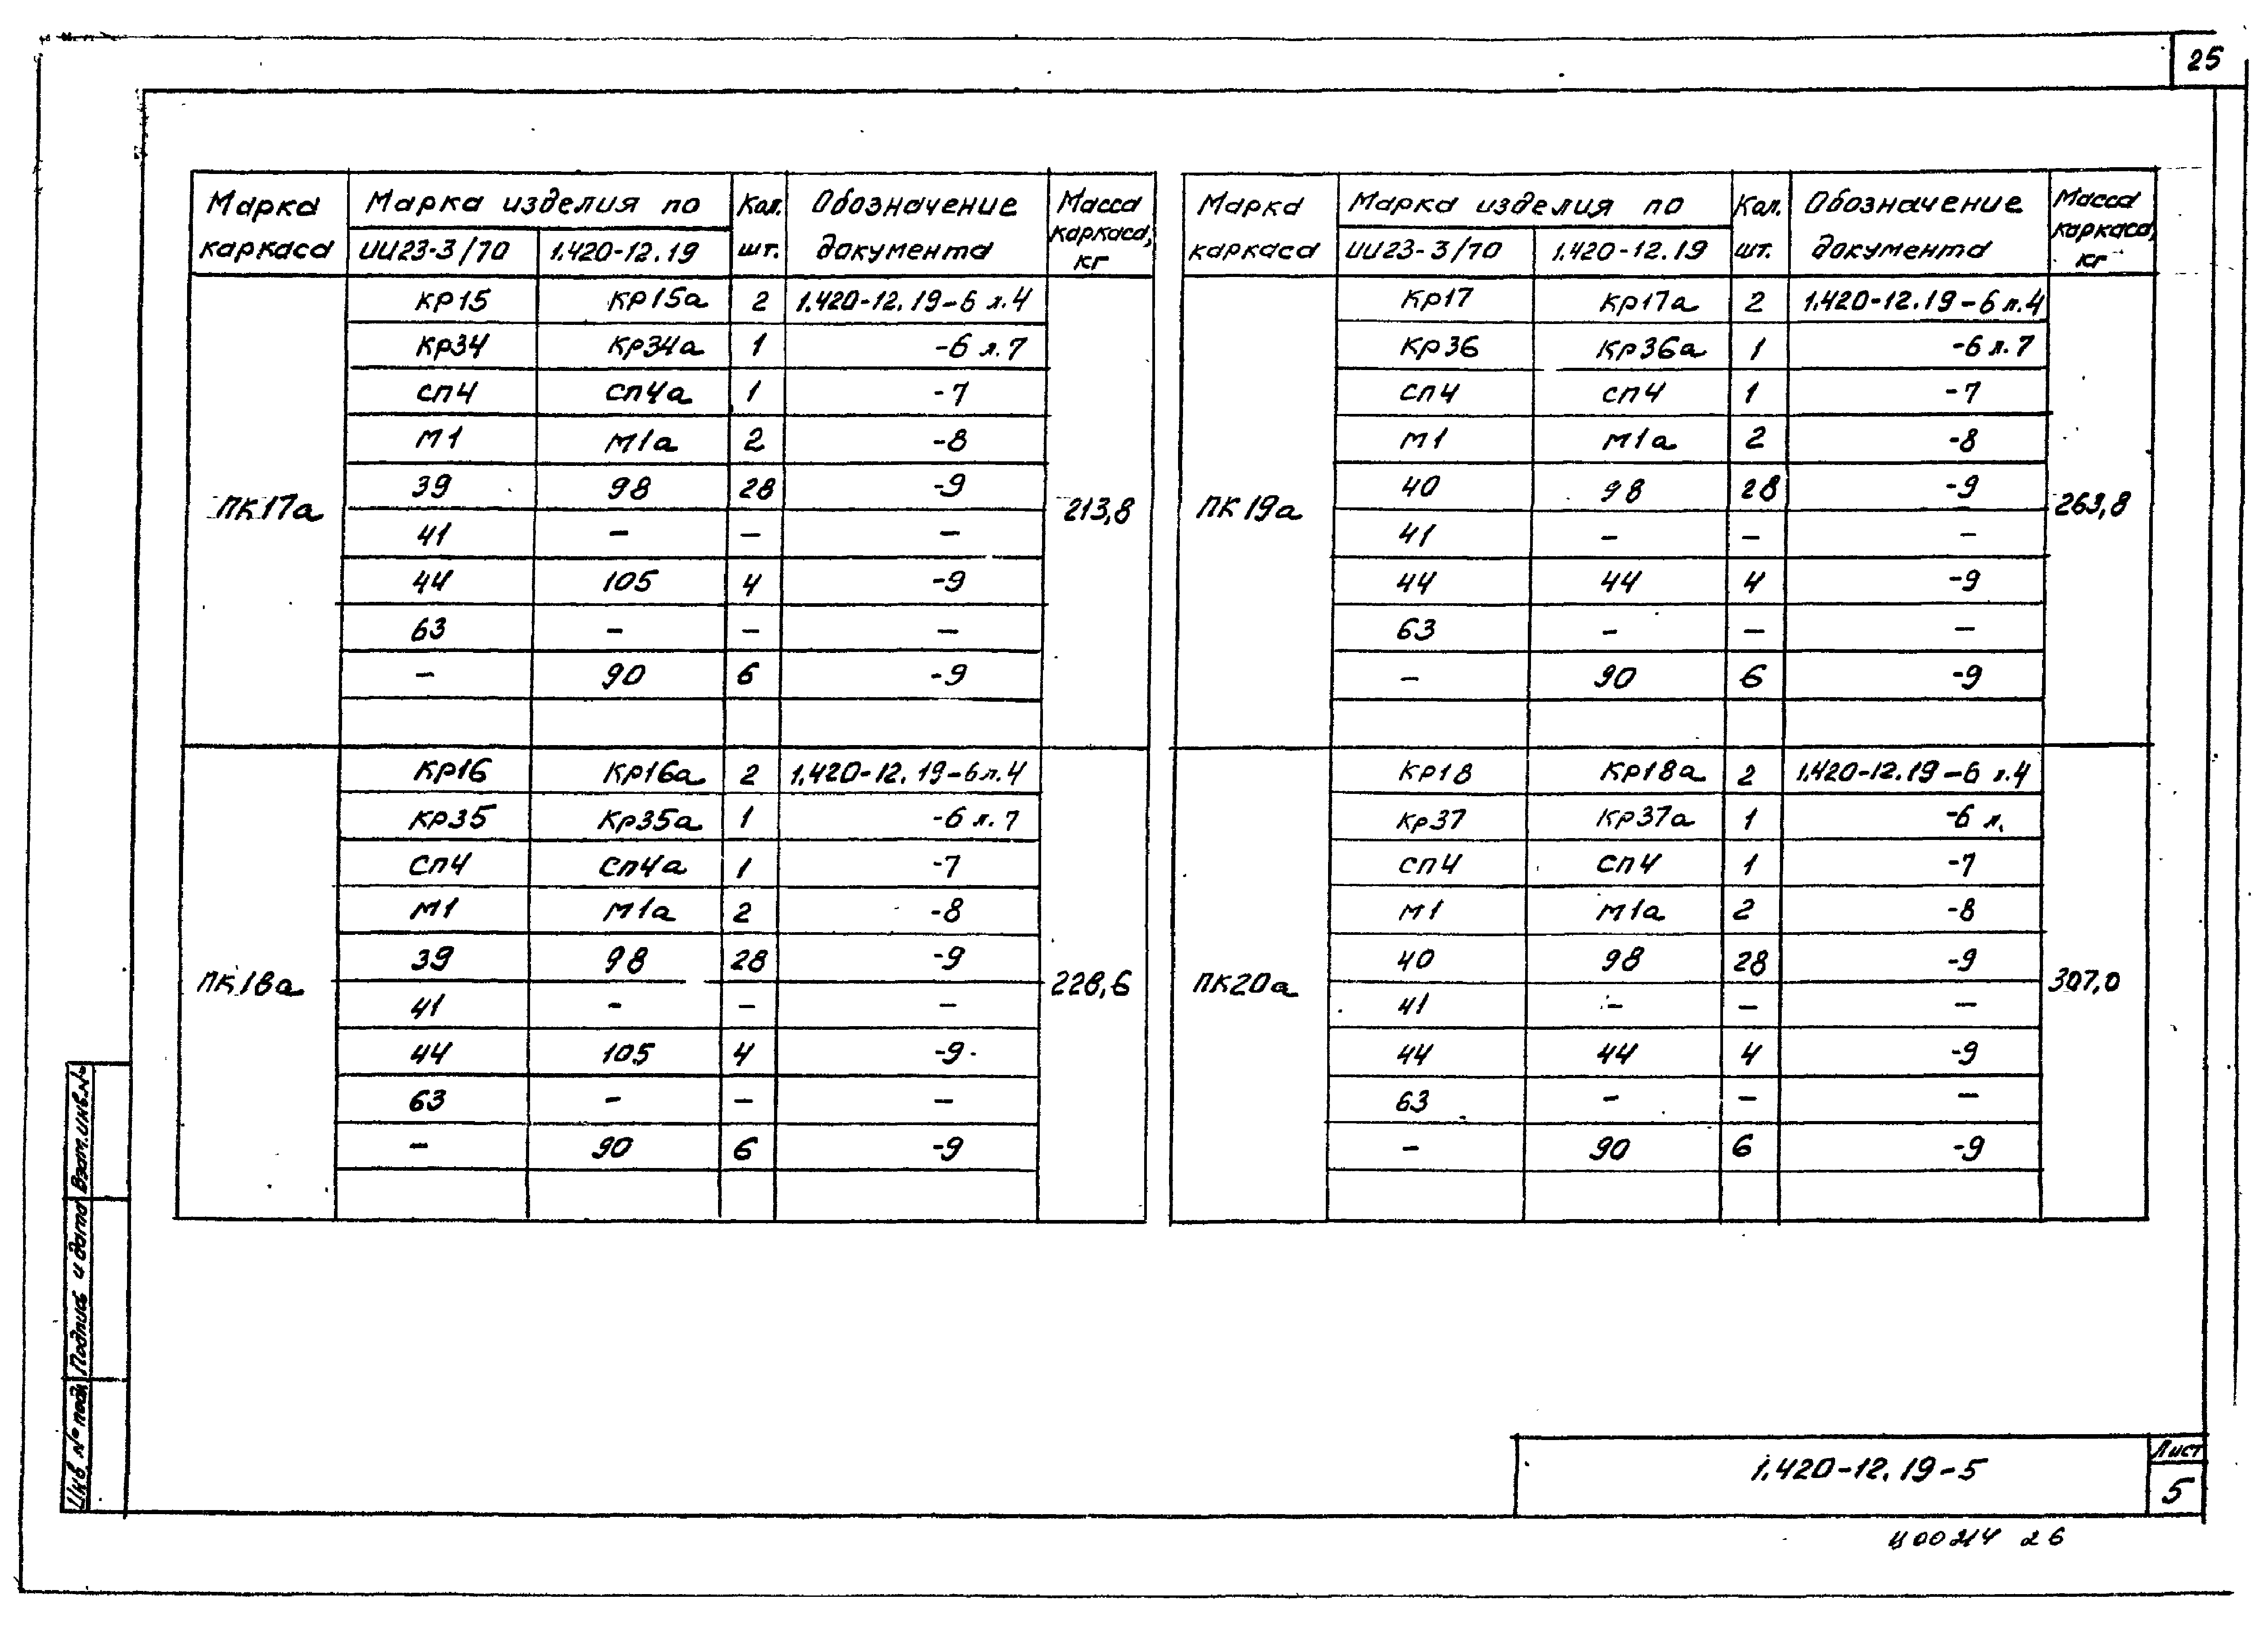 25
Марка каркаса | Марка изделия по | Кол. шт. | Обозначение документа | Масса каркаса, кг
ИИ23-3/70 | 1.420-12.19
Кр15 | Кр15а | 2 | 1.420-12.19-6 л.4
Кр34 | Кр34а | 1 | -6 л.7
СП4 | СП4а | 1 | -7
М1 | М1а | 2 | -8
39 | 98 | 28 | -9
ПК17а | 213,8
41 | – | – | –
44 | 105 | 4 | -9
63 | – | – | –
– | 90 | 6 | -9
Кр16 | Кр16а | 2 | 1.420-12.19-6 л.4
Кр35 | Кр35а | 1 | -6 л.7
СП4 | СП4а | 1 | -7
М1 | М1а | 2 | -8
39 | 98 | 28 | -9
ПК18а | 228,6
41 | – | – | –
44 | 105 | 4 | -9
63 | – | – | –
– | 90 | 6 | -9
Марка каркаса | Марка изделия по | Кол. шт. | Обозначение документа | Масса каркаса, кг
ИИ23-3/70 | 1.420-12.19
Кр17 | Кр17а | 2 | 1.420-12.19-6 л.4
Кр36 | Кр36а | 1 | -6 л.7
СП4 | СП4 | 1 | -7
М1 | М1а | 2 | -8
40 | 98 | 28 | -9
ПК19а | 263,8
41 | – | – | –
44 | 44 | 4 | -9
63 | – | – | –
– | 90 | 6 | -9
Кр18 | Кр18а | 2 | 1.420-12.19-6 л.4
Кр37 | Кр37а | 1 | -6 л.
СП4 | СП4 | 1 | -7
М1 | М1а | 2 | -8
40 | 98 | 28 | -9
ПК20а | 307,0
41 | – | – | –
44 | 44 | 4 | -9
63 | – | – | –
– | 90 | 6 | -9
Инв. № подл. | Подпись и дата | Взам. инв. №
1.420-12.19-5
Лист
5
Ц00214 26